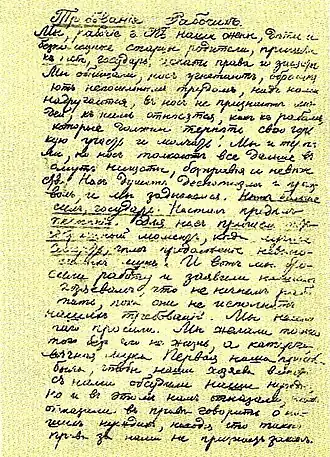 Требованія Рабочихъ.
Мы, рабочіе г. наши жены, дѣти и
старцы родители, пришли
къ тебѣ, государь, искать правды и защиты.
Мы обнищали, насъ угнетаютъ, обременя-
ютъ непосильнымъ трудомъ, надъ нами
надругаются, въ насъ не признаютъ лю-
дей, къ намъ относятся, какъ къ рабамъ,
которые должны терпѣть свою горь-
кую участь и молчать. Мы и терпѣ-
ли, но насъ толкаютъ все дальше въ
омутъ нищеты, безправія и невѣже-
ства. Насъ душитъ деспотизмъ и произ-
волъ, и мы задыхаемся. Нѣтъ больше
силъ, государь. Насталъ предѣлъ
терпѣнію. Для насъ пришелъ
моментъ, когда
смерть, чѣмъ продолженіе невыно-
симыхъ мукъ. И вотъ мы бро-
сили работу и заявили нашимъ
хозяевамъ что не начнемъ рабо-
тать, пока они не исполнятъ
нашихъ требованій. Мы не мно-
гаго просили. Мы желали только
того безъ чего не жизнь, а каторга
вѣчная мука. Первая наша просьба
была, чтобы наши хозяева вмѣстѣ
съ нами обсудили наши нужды
но и въ этомъ намъ отказали, намъ
отказали въ правѣ говорить о на-
шихъ нуждахъ, находя что такого
права за нами не признаетъ законъ.